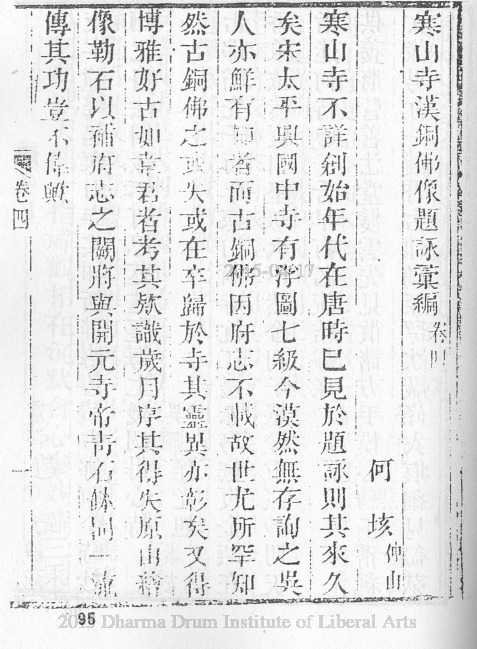 寒山寺漢銅佛像題詠彙編 卷四
何垓 仲山
寒山寺不詳創始年代在唐時已見於題詠則其來久
矣宋太平興國中寺有浮圖七級今漠然無存詢之吳
人亦鮮有知者而古銅佛因府志不載故世尤所罕知
然古銅佛之或失或在卒歸於寺其靈異亦彰矣又得
博雅好古如李君者考其欵識歲月序其得失原由繪
像勒石以補府志之闕將與開元寺帝青石鉢同一流
傳其功豈不偉歟
卷四
一
95
2015 Dharma Drum Institute of Liberal Arts